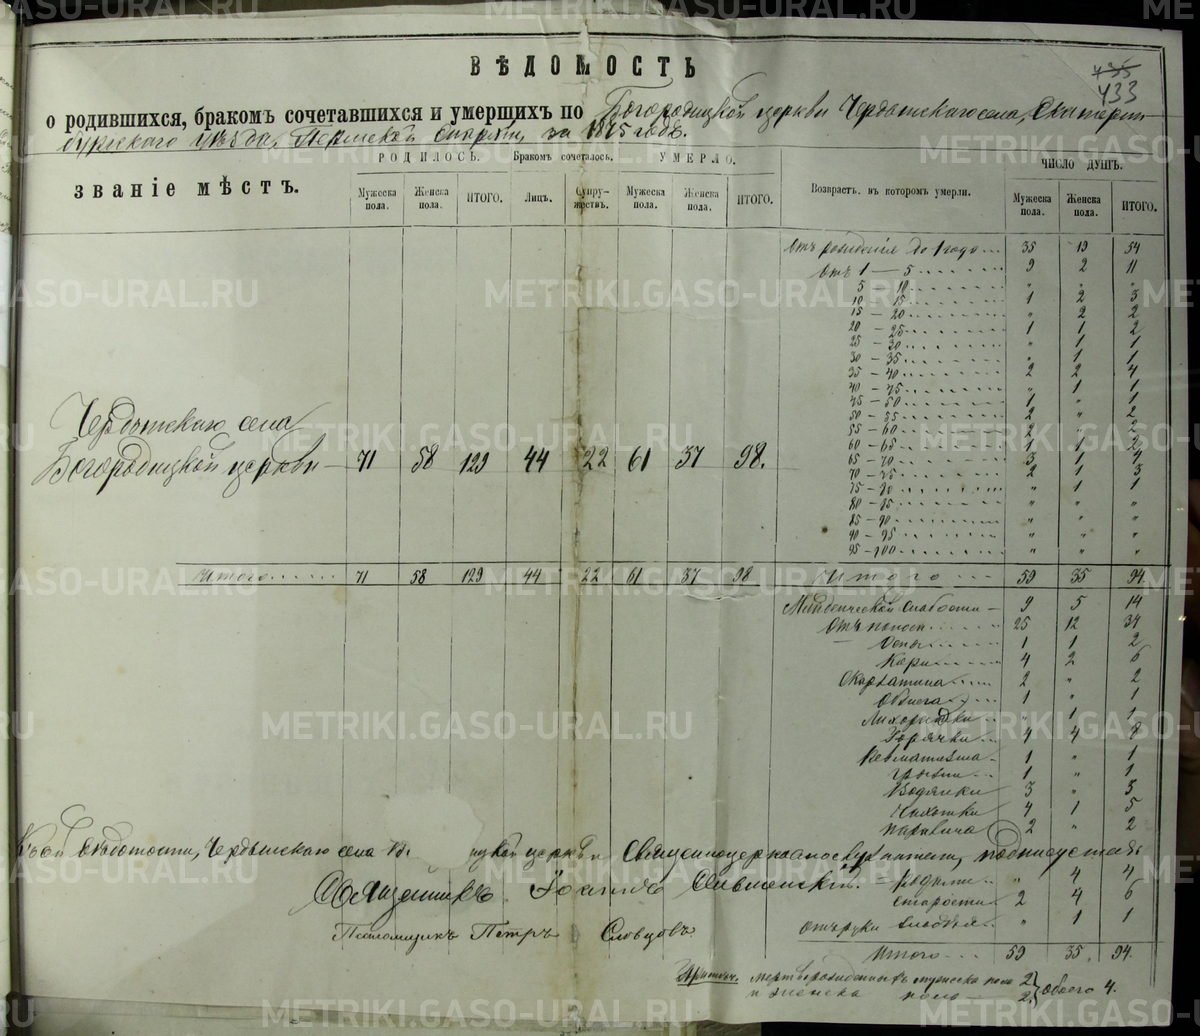 ВѢДОМОСТЬ
435
433
о родившихся, бракомъ сочетавшихся и умершихъ по Богородицкой церкви Чердынскаго села, Екатерин-
бургскаго уѣзда, Пермской Епархіи, за 1875 годъ.
ЗВАНІЕ МѢСТЪ. РОДИЛОСЬ. Бракомъ сочеталось. УМЕРЛО. Возрастъ, въ которомъ умерли. ЧИСЛО ДУШЪ.
Мужеска пола. Женска пола. ИТОГО. Лицъ. Супружествъ. Мужеска пола. Женска пола. ИТОГО. Мужеска пола. Женска пола. ИТОГО.
Отъ рожденія до 1 года 35 19 54
Отъ 1 — 5 9 2 11
5 — 10 " " "
10 — 15 1 2 3
15 — 20 " 2 2
20 — 25 1 1 2
25 — 30 " 1 1
30 — 35 " 1 1
35 — 40 2 2 4
40 — 45 " 1 1
45 — 50 1 " 1
50 — 55 2 " 2
55 — 60 2 " 2
60 — 65 1 1 2
65 — 70 3 1 4
70 — 75 2 1 3
75 — 80 " 1 1
80 — 85 " " "
85 — 90 " " "
90 — 95 " " "
95 — 100 " " "
села
Богородицкой церкви — 71 58 129 44 22 61 37 98.
Итого 71 58 129 44 22 61 37 98 Итого 59 35 94.
Младенческой слабости — 9 5 14
Отъ поноса 25 12 34
Оспы 1 1 2
Кори 4 2 6
Скарлатина 2 " 2
1 " 1
Лихорадки " 1 1
Горячки 4 4 8
Ревматизма 1 " 1
Грыжи 1 " 1
Водянки 3 " 3
Чахотки 4 1 5
Паралича 2 " 2
Къ сей вѣдомости, села церкви Священноцерковнослужители, подписуемся:
Священникъ Іоаннъ
Родами " 4 4
Старости 2 4 6
Псаломщикъ Петръ Словцовъ.
" 1 1
Итого 59 35 94.
Примѣч. мертворожденныхъ мужеска пола 2
и женска пола — 2 } всего 4.
METRIKI.GASO-URAL.RU